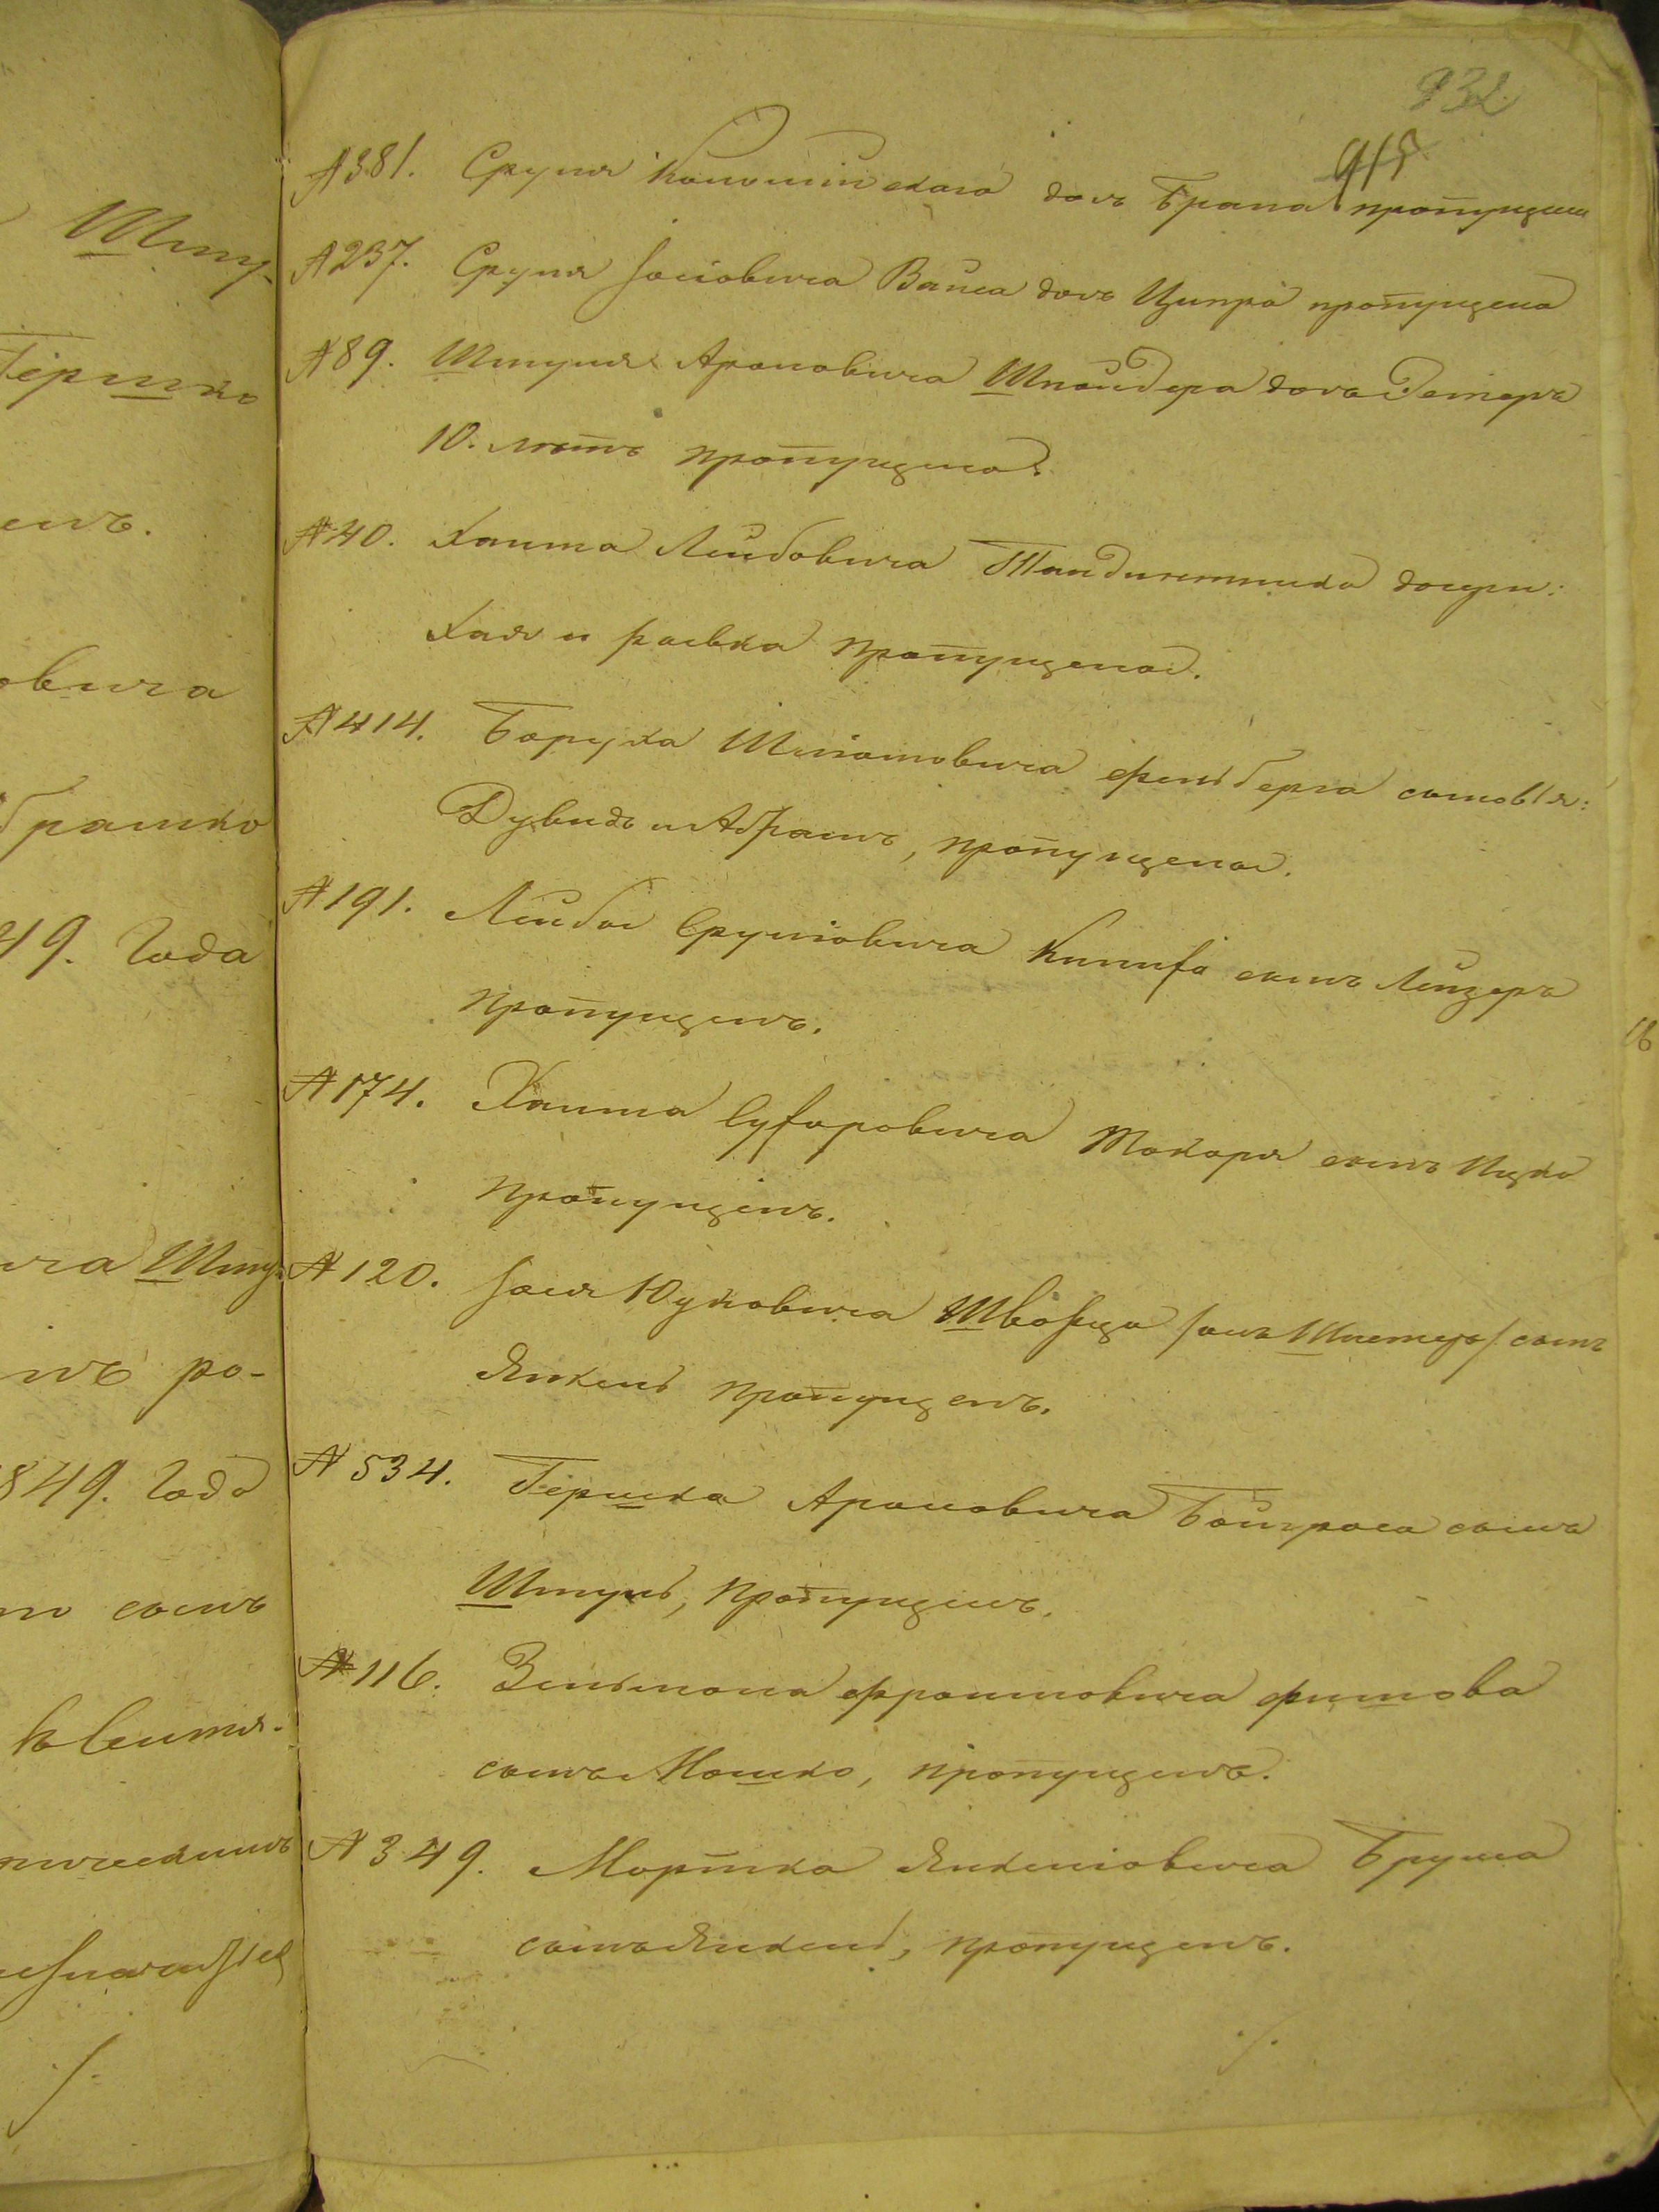 932
915
№381. Сруля дочь Брана пропущена
№237. Сруля Іосіовича Вайса дочь Ципра пропущена
№89. Шмуля Ароновича Шнайдера дочь Эстеръ
10. лѣтъ пропущена.
№40. Хаима Лейбовича Тандитника дочери:
Хая и Ривка пропущены.
№414. Боруха Шліомовича Фельдберга сыновья:
Дувидъ и Абрамъ, пропущены.
№191. Лейбы Сруліовича сынъ Лейзеръ
пропущенъ.
№174. Хаима Сухаровича Токаря сынъ Ицко
пропущенъ.
№120. Іося Юдковича Шварца сынъ
Янкель пропущенъ.
№534. Гершка Ароновича Байграса сынъ
Шмуль, пропущенъ.
№116. Зельмана Фроимовича Фишова
сынъ Мошко, пропущенъ.
№349. Мортка Янкеліовича Брума
сынъ Янкель, пропущенъ.
Шму-
Гершко
енъ.
овича
брамко
49. Года
ича Шму-
нъ ро-
849. Года
сынъ